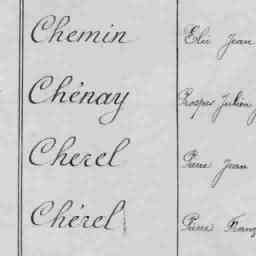 Chemin Elie Jean
Chénay Prosper Julien
Cherel Pierre Jean
Chérel Pierre